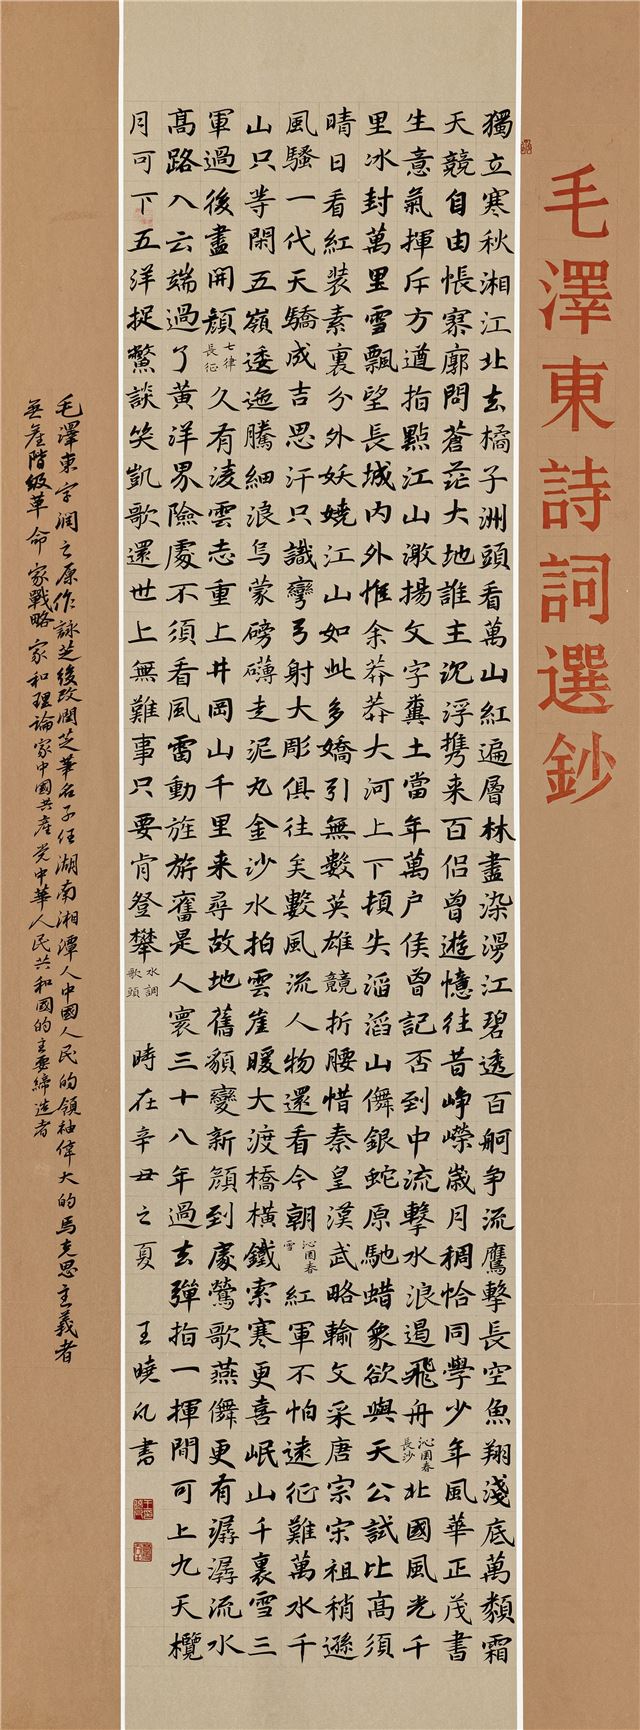 毛澤東詩詞選鈔
獨立寒秋湘江北去橘子洲頭看萬山紅遍層林盡染漫江碧透百舸争流鷹擊長空魚翔淺底萬類霜
天競自由悵寥廓問蒼茫大地誰主沉浮攜来百侣曾遊憶往昔崢嶸歲月稠恰同學少年風華正茂書
生意氣揮斥方遒指點江山激揚文字糞土當年萬户侯曾記否到中流擊水浪遏飛舟 沁園春長沙 北國風光千
里冰封萬里雪飄望長城内外惟余莽莽大河上下頓失滔滔山儛銀蛇原馳蜡象欲與天公試比高須
晴日看紅装素裏分外妖嬈江山如此多嬌引無數英雄競折腰惜秦皇漢武略輸文采唐宗宋祖稍遜
風騷一代天驕成吉思汗只識彎弓射大彫俱往矣數風流人物還看今朝 沁園春雪 紅軍不怕遠征難萬水千
山只等閑五嶺逶迤騰細浪烏蒙磅礴走泥丸金沙水拍雲崖暖大渡橋横鐵索寒更喜岷山千裏雪三
軍過後盡開顔 七律長征 久有凌雲志重上井岡山千里来尋故地舊貌變新顔到處鶯歌燕儛更有潺潺流水
高路入云端過了黄洋界險處不須看風雷動旌旂奮是人寰三十八年過去彈指一揮間可上九天攬
月可下五洋捉鱉談笑凱歌還世上無難事只要肯登攀 水調歌頭 時在辛丑之夏 王曉凡書
毛澤東字润之原作詠芝後改潤芝筆名子任湖南湘潭人中國人民的領袖偉大的馬克思主義者
無產階級革命家戰略家和理論家中國共產党中華人民共和國的主要締造者